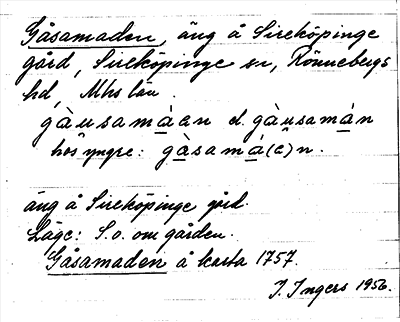 Gåsamaden, äng å Sireköpinge
gård, Sireköpinge sn, Rönnebergs
hd, Mhs län.
gàusamáan el. gàusamán
hos yngre: gàsamá(ê)n.
äng å Sireköpinge gård.
Läge: S.o. om gården.
Gåsamaden å karta 1757.
I. Ingers 1956.